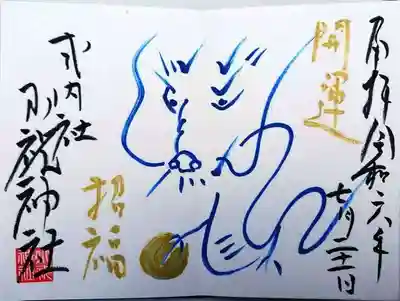 奉拝令和六年
七月二十一日
開運
招福
式内社
祝神社